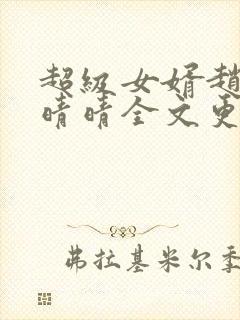 超級女婿趙
晴晴全文更
弗拉基米尔季